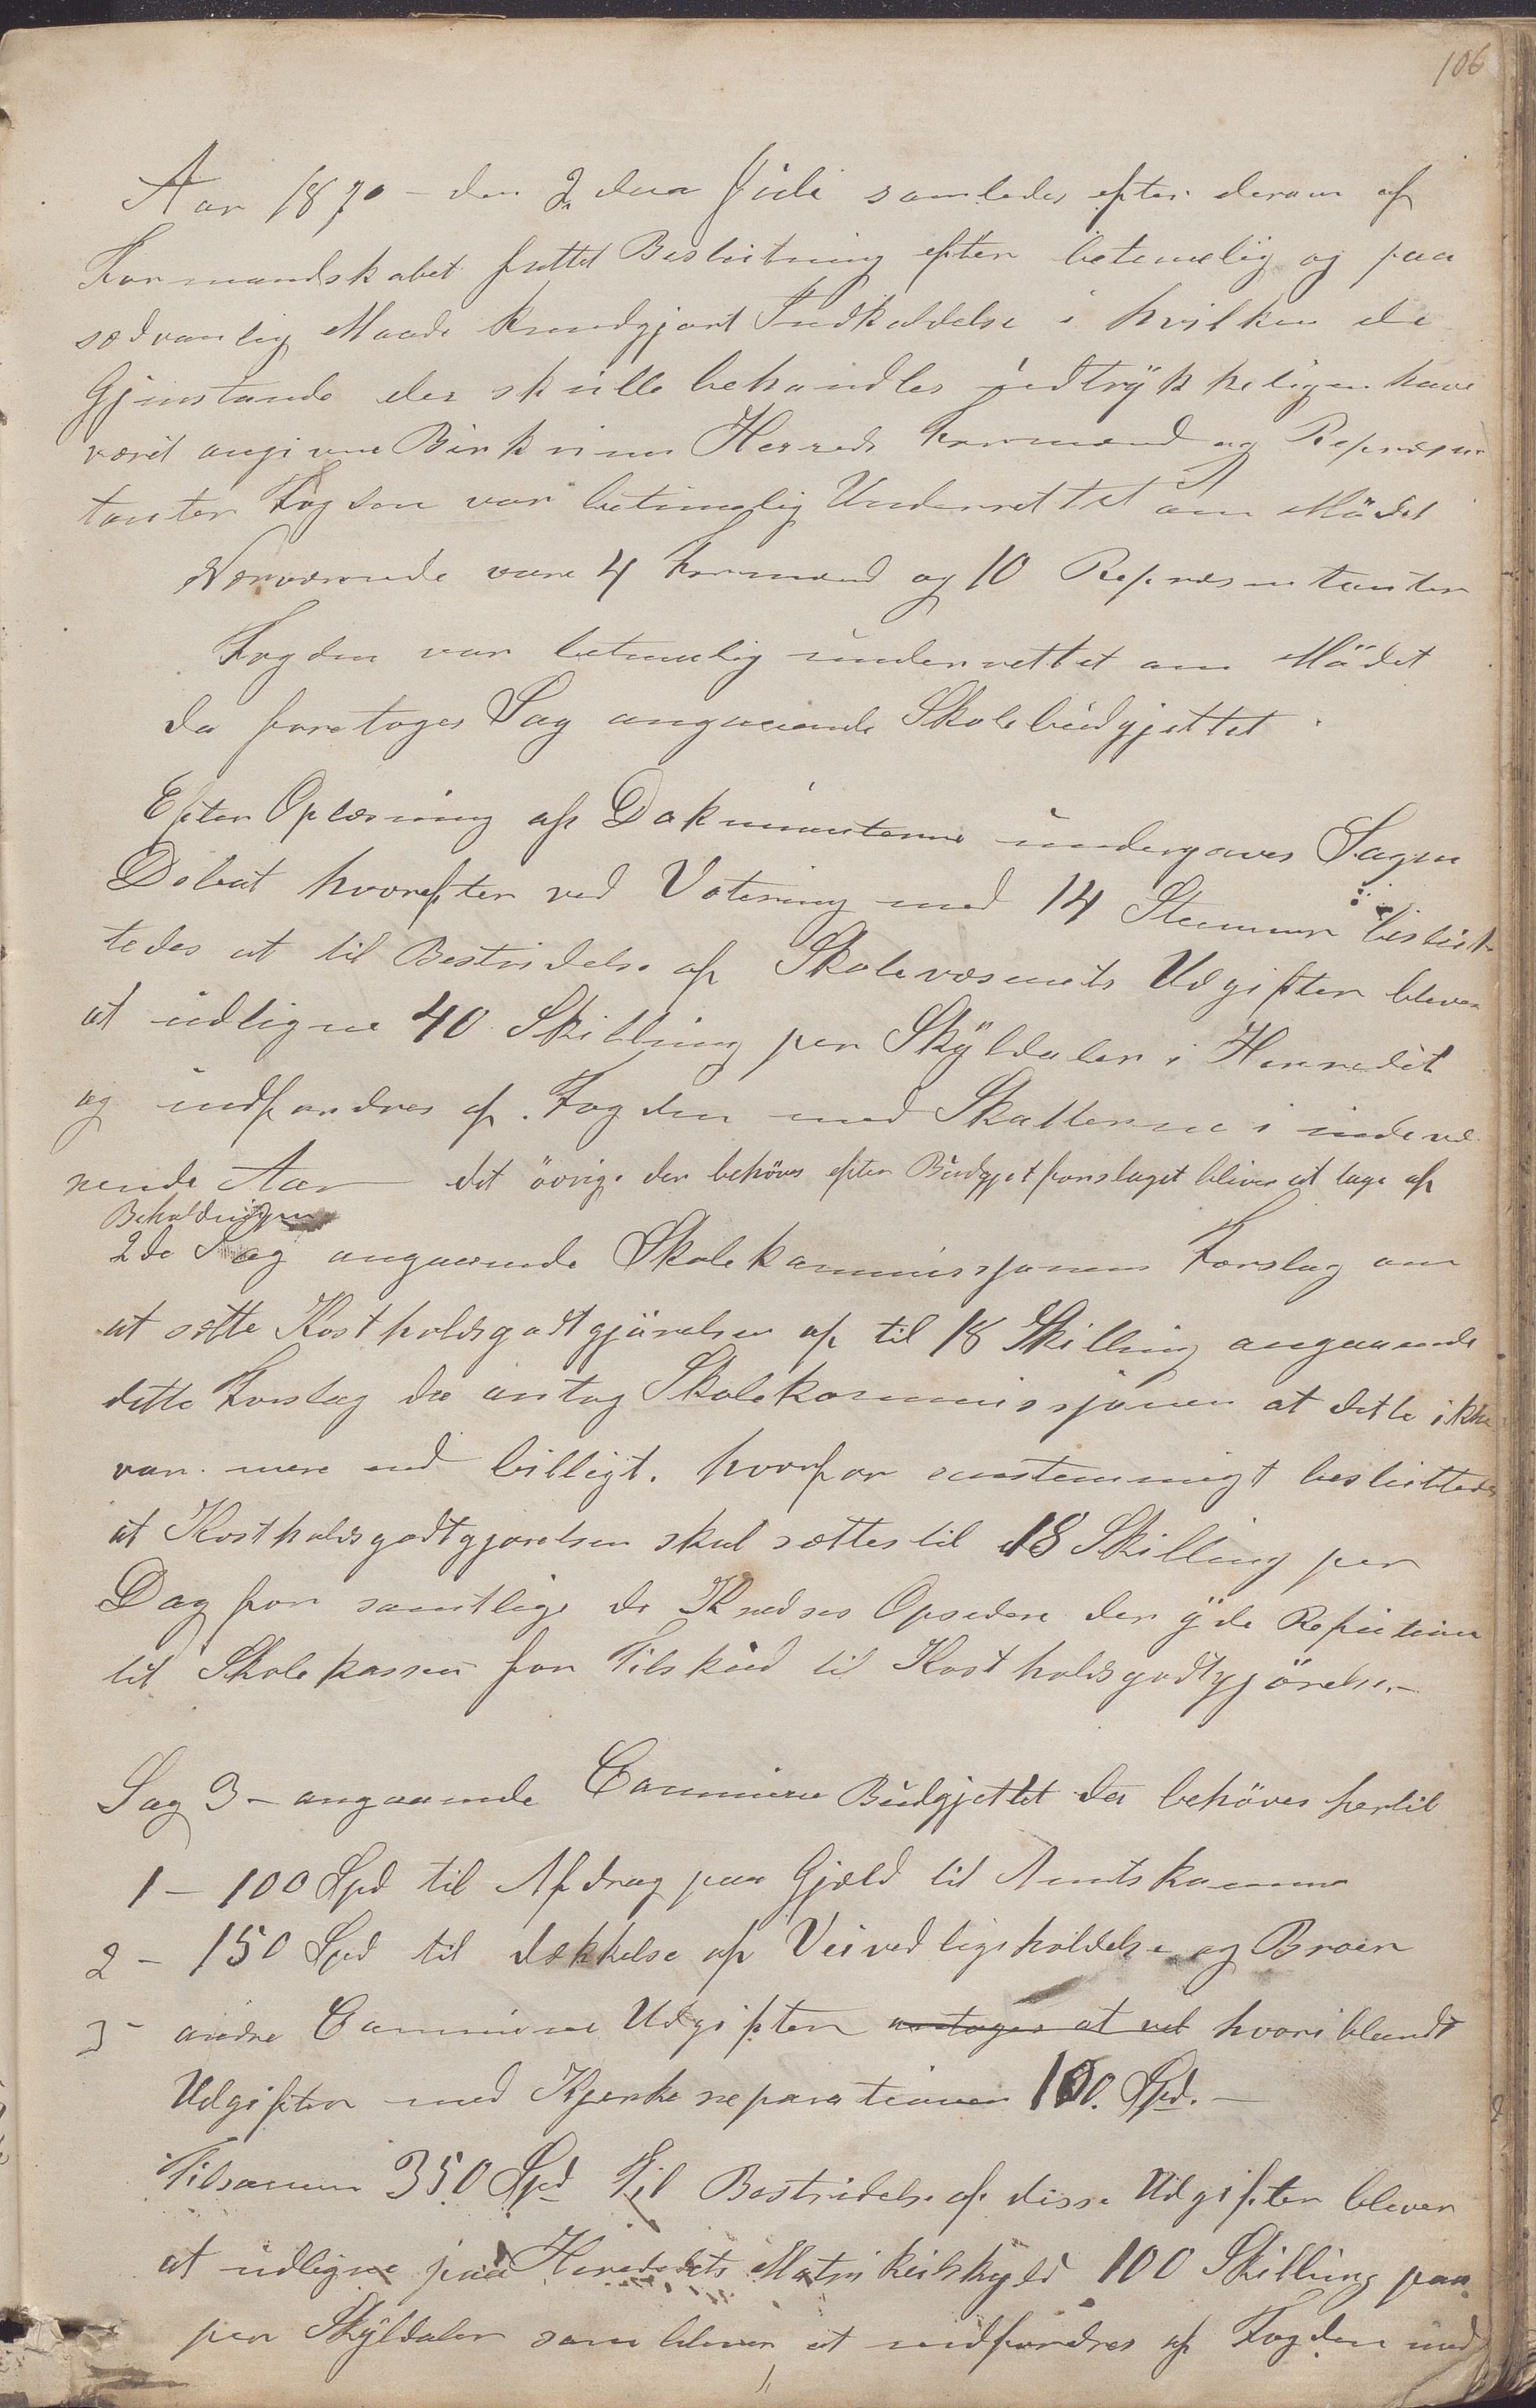 106
Aar 1870 - den 2den Juli samledes efter derom af
Formandskabet fattet Beslutning efter betimelig og paa
sedvanlig Maade kundgjort Indkaldelse i hvilken de
Gjenstande der skulle behandles udtrykkeligen have
været angivne Birkrims Herreds Formænd og Repræsen
tanter Fogden var betimelig Underrettet om Mödet
Nærværende vare 4 Formænd og 10 Repræsentanter
Fogden var betimelig underrettet om Mödet
da foretoges Sag angaaende Skolebudgjettet.
Efter Oplæsning af Dokumenterne undergaves Sagen
Debat hvorefter ved Votering med 14 Stemmer beslut-
tedes at til Bestridelse af Skolevæsenets Udgifter bliver
at udligne 40 Skilling per Skyldaler i Herredet
og indfordres af Fogden med Skatterne i indevæ
rende Aar det övrige der behöves efter Budgjetforslaget bliver at tage af
Beholdningen
2de Sag angaaende Skolekommissjonens Forslag om
at sætte Kostholdsgodtgjörelsen af til 18 Skilling angaaende
dette Forslag da antog Skolekommissjonen at dette ikke
var mere end billigt. hvorfor enstemmigt besluttedes
at Kostholdsgodtgjorelsen skal sættes til 18 Skilling per
Dag for samtlige de Kredses Opsidere der yde
til Skolekassen for Tilskud til Kostholdsgodtgjörelse. -
Sag 3 - angaaende Commune Budgjettet da behöves hertil
1 - 100 Spd til Afdrag paa Gjæld til Amtskommune
2 - 150 Spd til dækkelse af Veivedligeholdelse og Broer
3 - andre Commune Udgifter antoges at vel hvoriblandt
Udgifter med Kjerkereparationer 100. Spd. -
Tilsammen 350 Spd Til Bestridelse af disse Udgifter bliver
at udligne paa Herredets Matrikulskyld 100 Skilling paa
per Skyldaler som bliver at indfordres af Fogden med